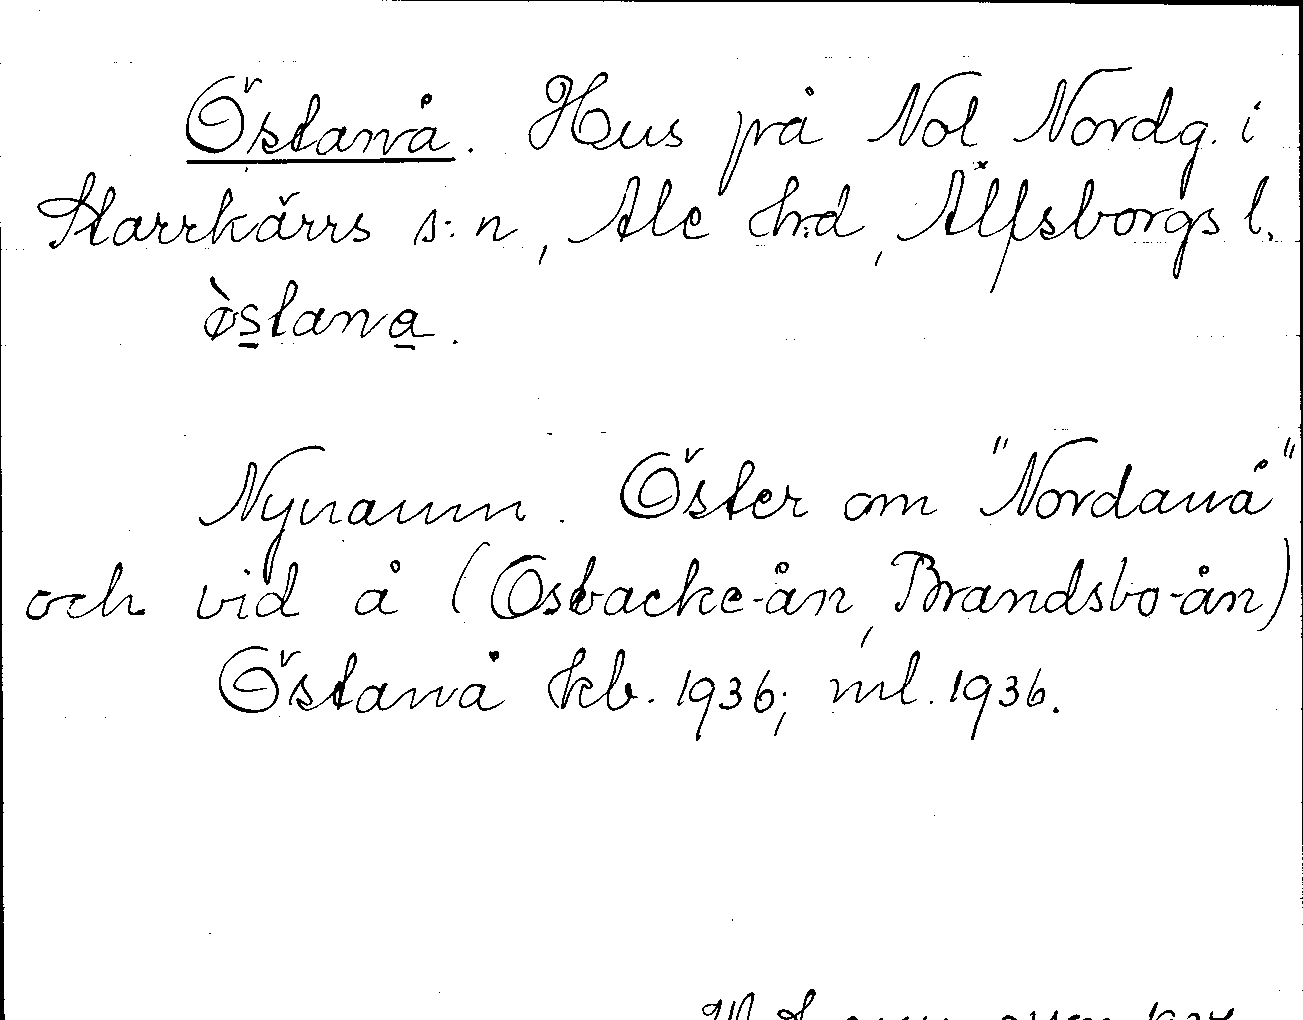 Östanå. Hus på Nol Nordg. i
Starrkärrs s:n, Ale h:d, Älfsborgs l.
ø̀stana.
Nynamn. Öster om "Nordanå"
och vid å (Osbacke-ån, Brandsbo-ån)
Östanå kb. 1936; ml. 1936.